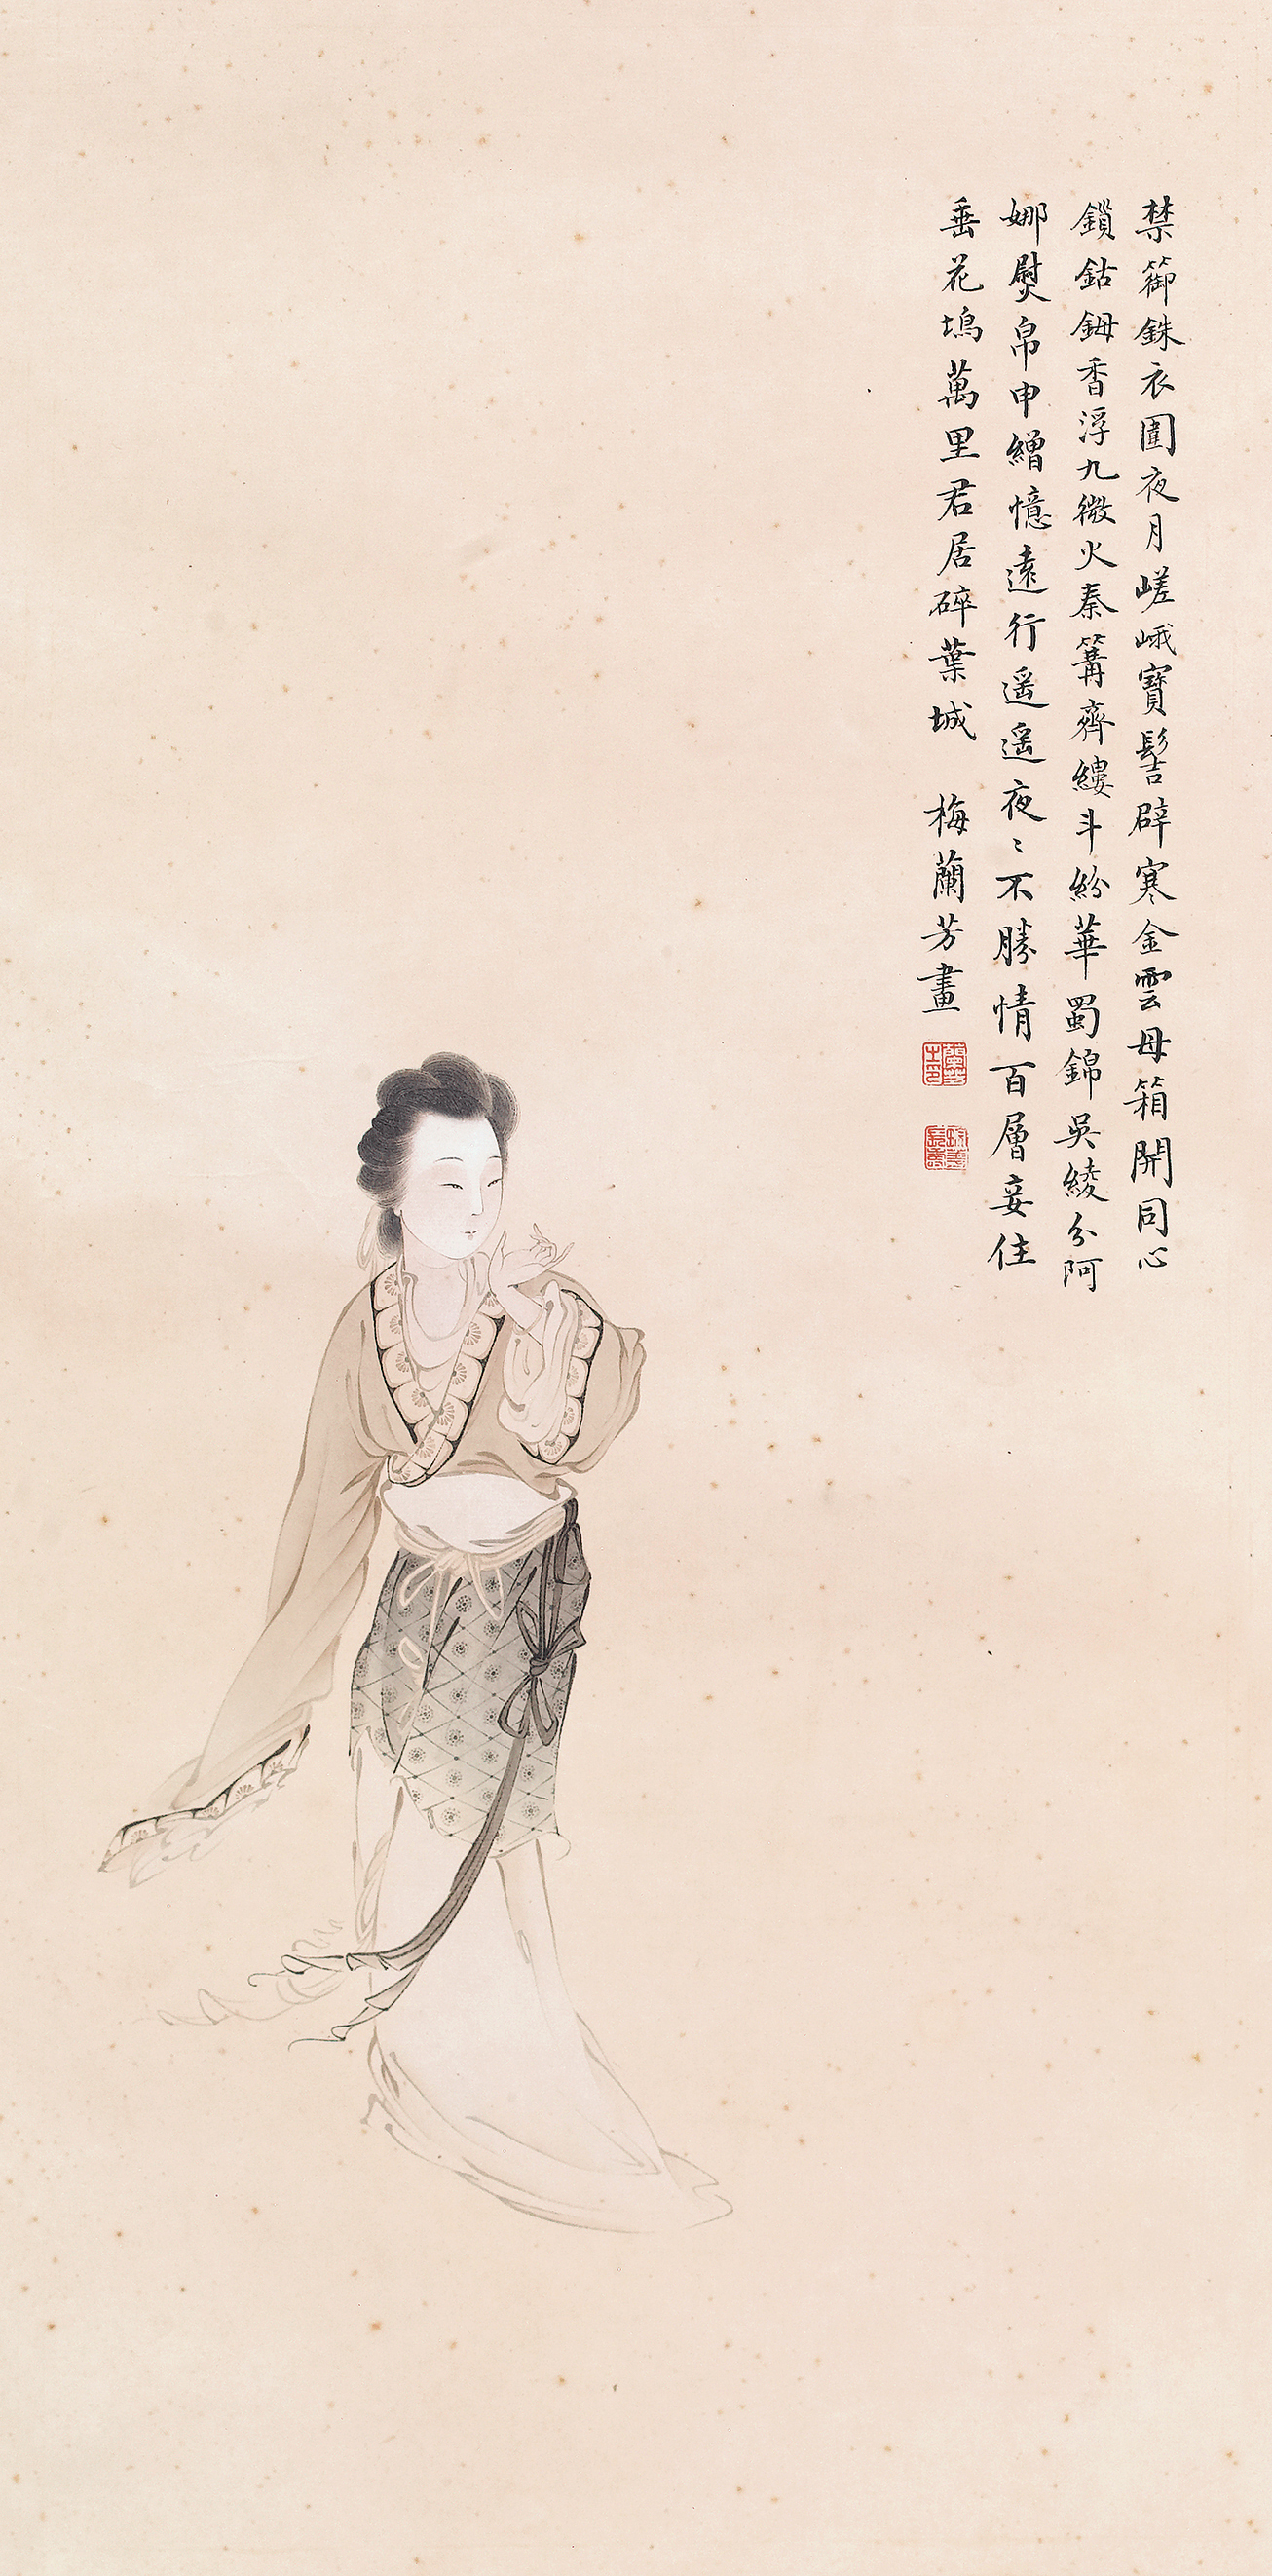 禁籞銖衣圍夜月嵯峨寶髻辟寒金雲母箱開同心
鎖鈷鉧香浮九微火秦篝齊縷斗紛華蜀錦吳綾分阿
娜熨帛申繒憶遠行遥遥夜〻不勝情百層妾住
垂花塢萬里君居碎葉城　梅蘭芳畫